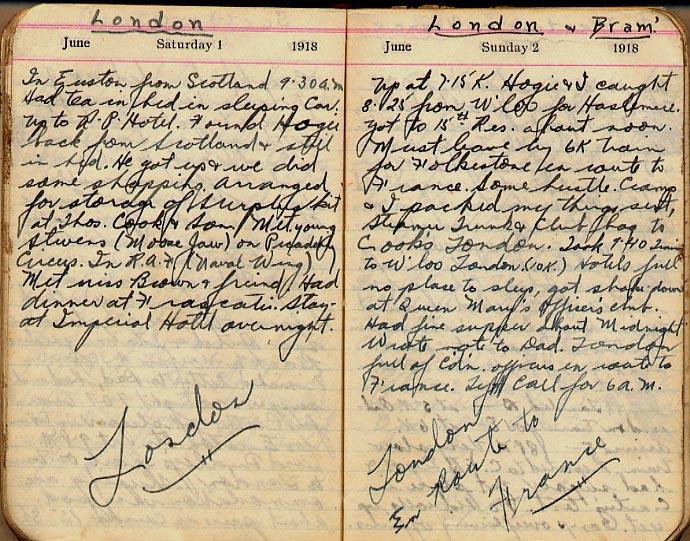 London
June Saturday 1 1918
In Euston from Scotland 9.30 a.m.
Had tea in bed in sleeping Car.
up to R.P. Hotel. Found Hogie
back from Scotland & still
in bed. He got up & we did
some shopping. Arranged
for storage of surplus kit
at Thos. Cook & Son. Met young
Stevens (Moose Jaw) on Picadelly
Circus. In R.A.F. (Naval Wing)
Met miss Brown & friend. Had
dinner at Frascatis. Stay-
at Imperial Hotel overnight.
London
London & Bram'
June Sunday 2 1918
Up at 7.15 K. Hogie & I caught
8.25 from W'loo for Haslemere.
got to 15th Res. about noon.
Must leave by 6K train
for Folkestone en route to
France. Some hustle. Cramp
& I packed my things, sent
Steamer Trunk & Club bag to
Cooks London. Took 9.40 train
to W'loo London. (10K.) Hotels full
no place to sleep, got shake down
at Queen Mary's Officers club.
Had fine supper about Midnight
Wrote note to Dad. London
full of Cdn. officers en route to
France. Left Call for 6 a.m.
London
En Route to
France